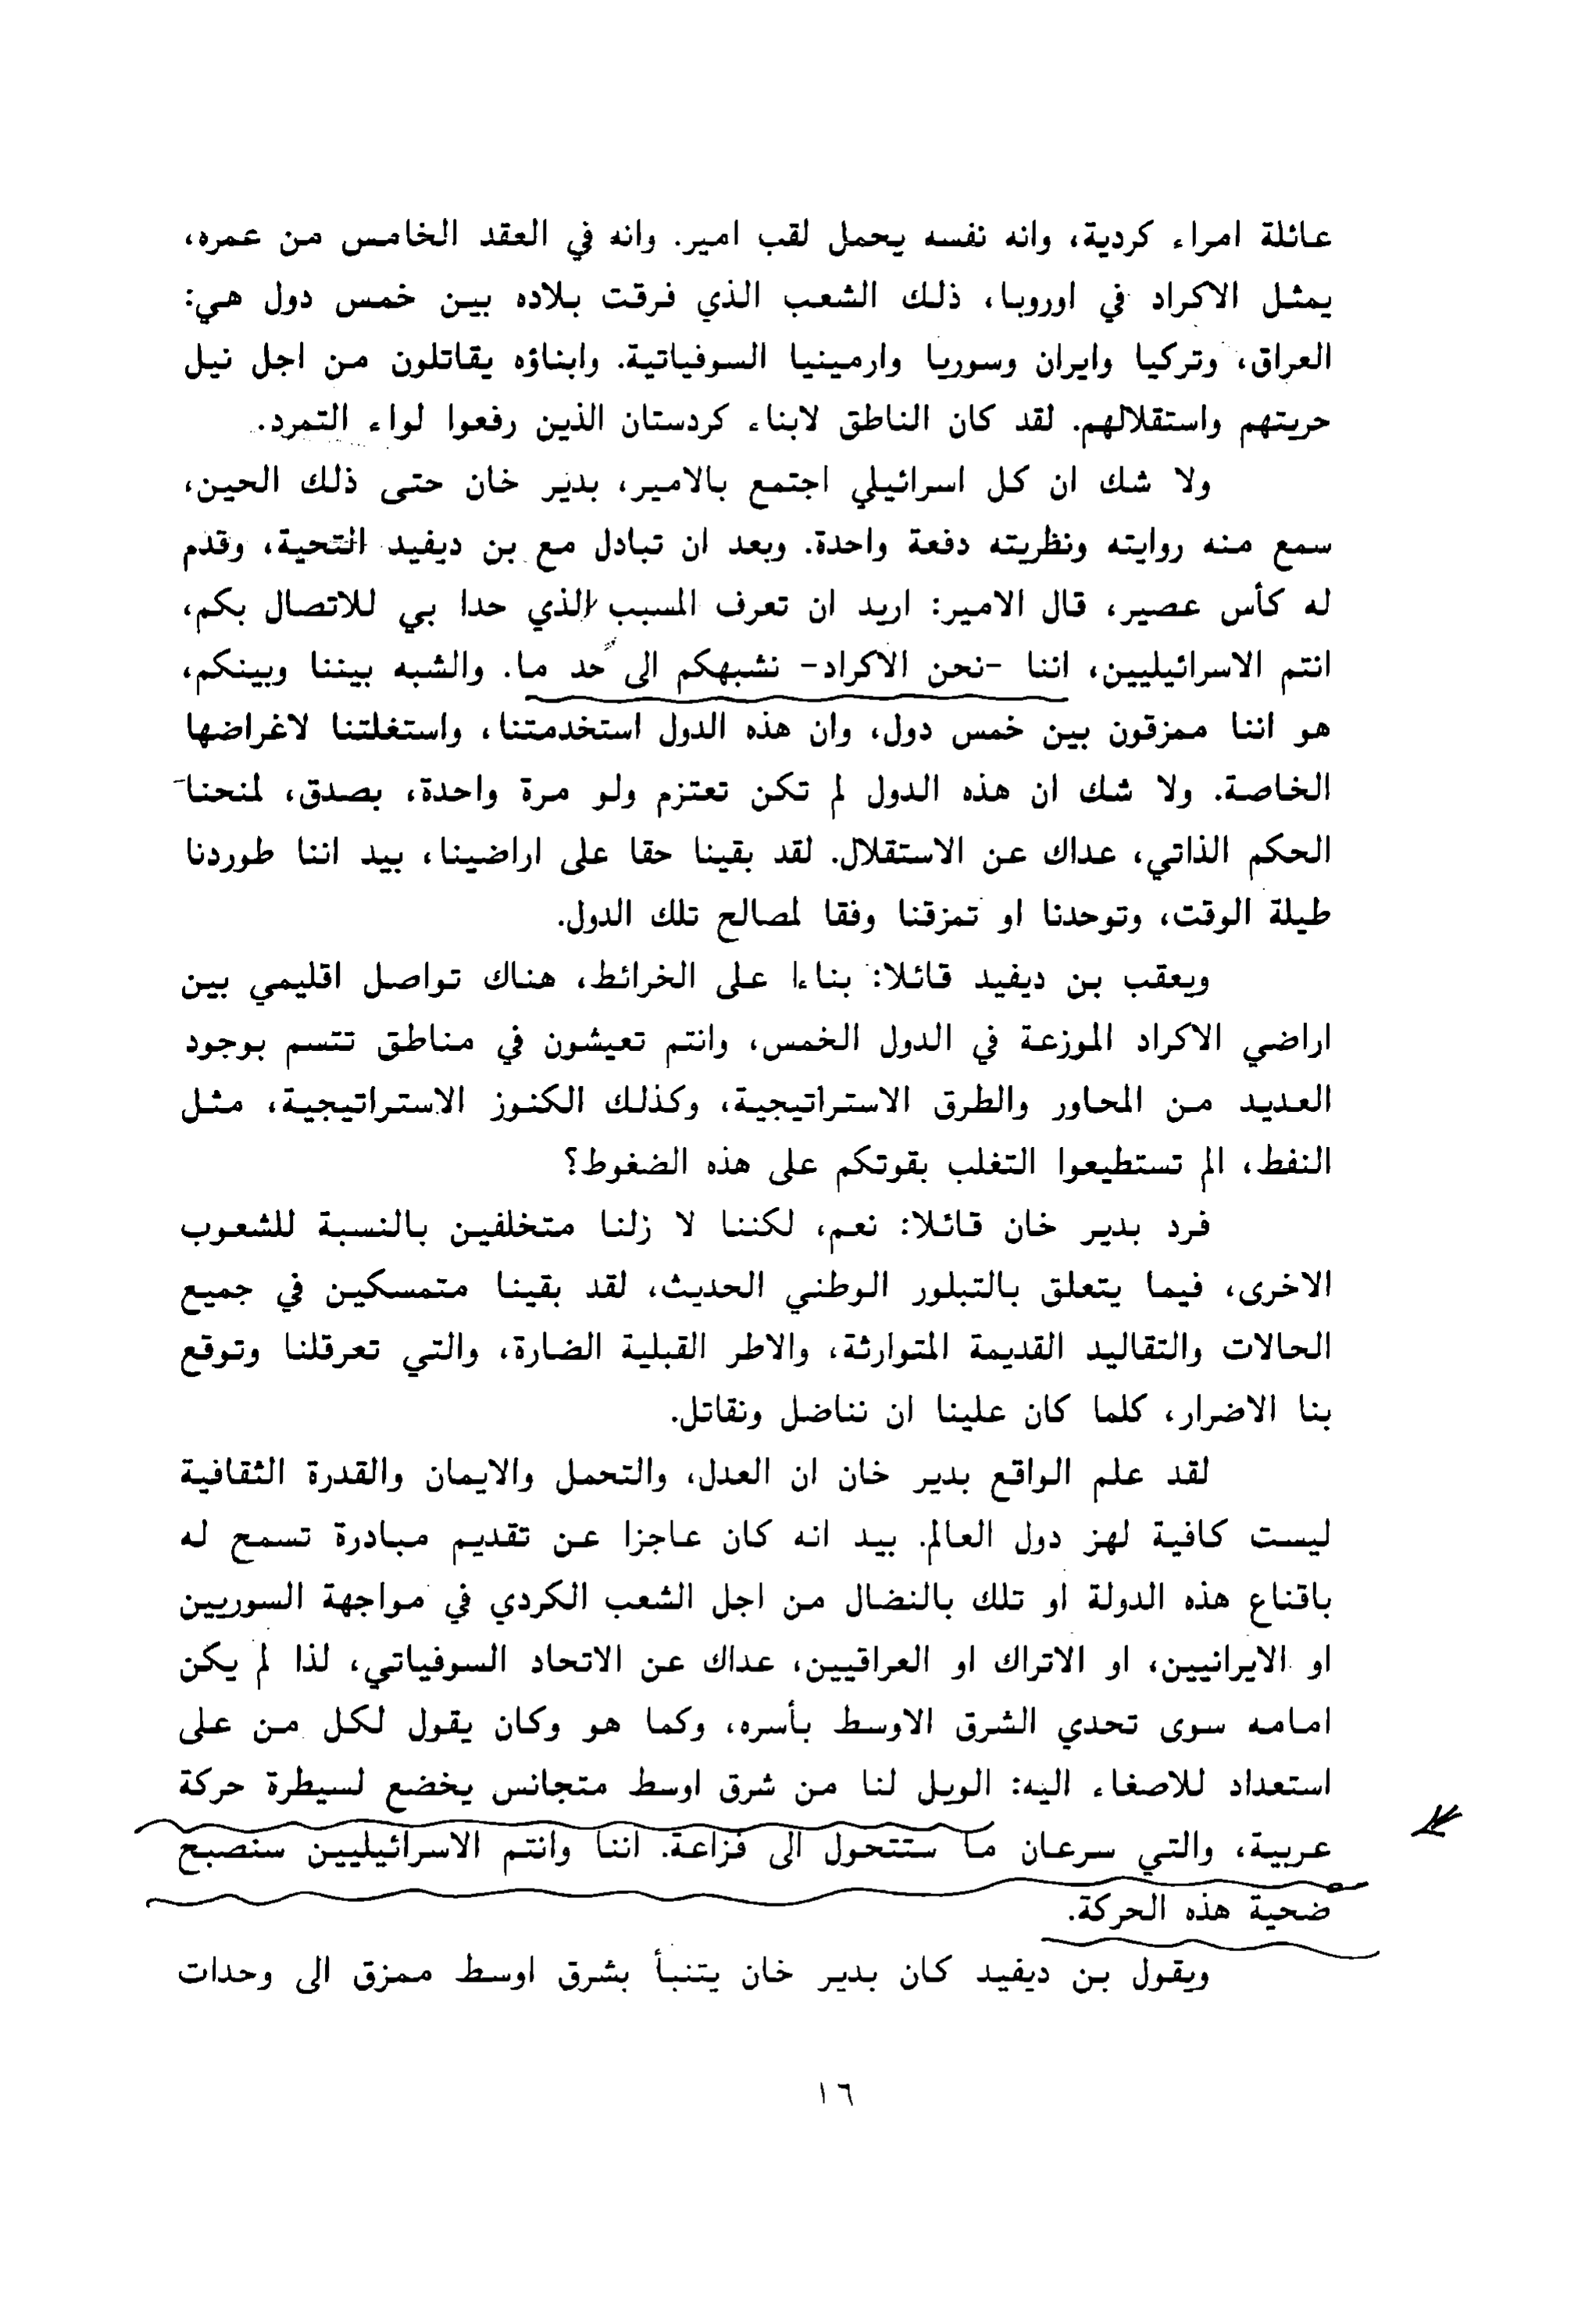 عائلة امراء كردية، وانه نفسه يحمل لقب امير. وانه في العقد الخامس من عمره،
يمثل الاكراد في اوروبا، ذلك الشعب الذي فرقت بلاده بين خمس دول هي:
العراق، وتركيا وايران وسوريا وارمينيا السوفياتية. وابناؤه يقاتلون من اجل نيل
حريتهم واستقلالهم. لقد كان الناطق لابناء كردستان الذين رفعوا لواء التمرد.
ولا شك ان كل اسرائيلي اجتمع بالامير، بدير خان حتى ذلك الحين،
سمع منه روايته ونظريته دفعة واحدة. وبعد ان تبادل مع بن ديفيد التحية، وقدم
له كأس عصير، قال الامير: اريد ان تعرف المسبب الذي حدا بي للاتصال بكم،
انتم الاسرائيليين، اننا -نحن الاكراد- نشبهكم الى حد ما. والشبه بيننا وبينكم،
هو اننا ممزقون بين خمس دول، وان هذه الدول استخدمتنا، واستغلتنا لاغراضها
الخاصة. ولا شك ان هذه الدول لم تكن تعتزم ولو مرة واحدة، بصدق، لمنحنا
الحكم الذاتي، عداك عن الاستقلال. لقد بقينا حقا على اراضينا، بيد اننا طوردنا
طيلة الوقت، وتوحدنا او تمزقنا وفقا لمصالح تلك الدول.
ويعقب بن ديفيد قائلا: بناءا على الخرائط، هناك تواصل اقليمي بين
اراضي الاكراد الموزعة في الدول الخمس، وانتم تعيشون في مناطق تتسم بوجود
العديد من المحاور والطرق الاستراتيجية، وكذلك الكنوز الاستراتيجية، مثل
النفط، الم تستطيعوا التغلب بقوتكم على هذه الضغوط؟
فرد بدير خان قائلا: نعم، لكننا لا زلنا متخلفين بالنسبة للشعوب
الاخرى، فيما يتعلق بالتبلور الوطني الحديث، لقد بقينا متمسكين في جميع
الحالات والتقاليد القديمة المتوارثة، والاطر القبلية الضارة، والتي تعرقلنا وتوقع
بنا الاضرار، كلما كان علينا ان نناضل ونقاتل.
لقد علم الواقع بدير خان ان العدل، والتحمل والايمان والقدرة الثقافية
ليست كافية لهز دول العالم. بيد انه كان عاجزا عن تقديم مبادرة تسمح له
باقناع هذه الدولة او تلك بالنضال من اجل الشعب الكردي في مواجهة السوريين
او الايرانيين، او الاتراك او العراقيين، عداك عن الاتحاد السوفياتي، لذا لم يكن
امامه سوى تحدي الشرق الاوسط بأسره، وكما هو وكان يقول لكل من على
استعداد للاصغاء اليه: الويل لنا من شرق اوسط متجانس يخضع لسيطرة حركة
عربية، والتي سرعان ما ستتحول الى فزاعة. اننا وانتم الاسرائيليين سنصبح
ضحية هذه الحركة.
ويقول بن ديفيد كان بدير خان يتنبأ بشرق اوسط ممزق الى وحدات
١٦